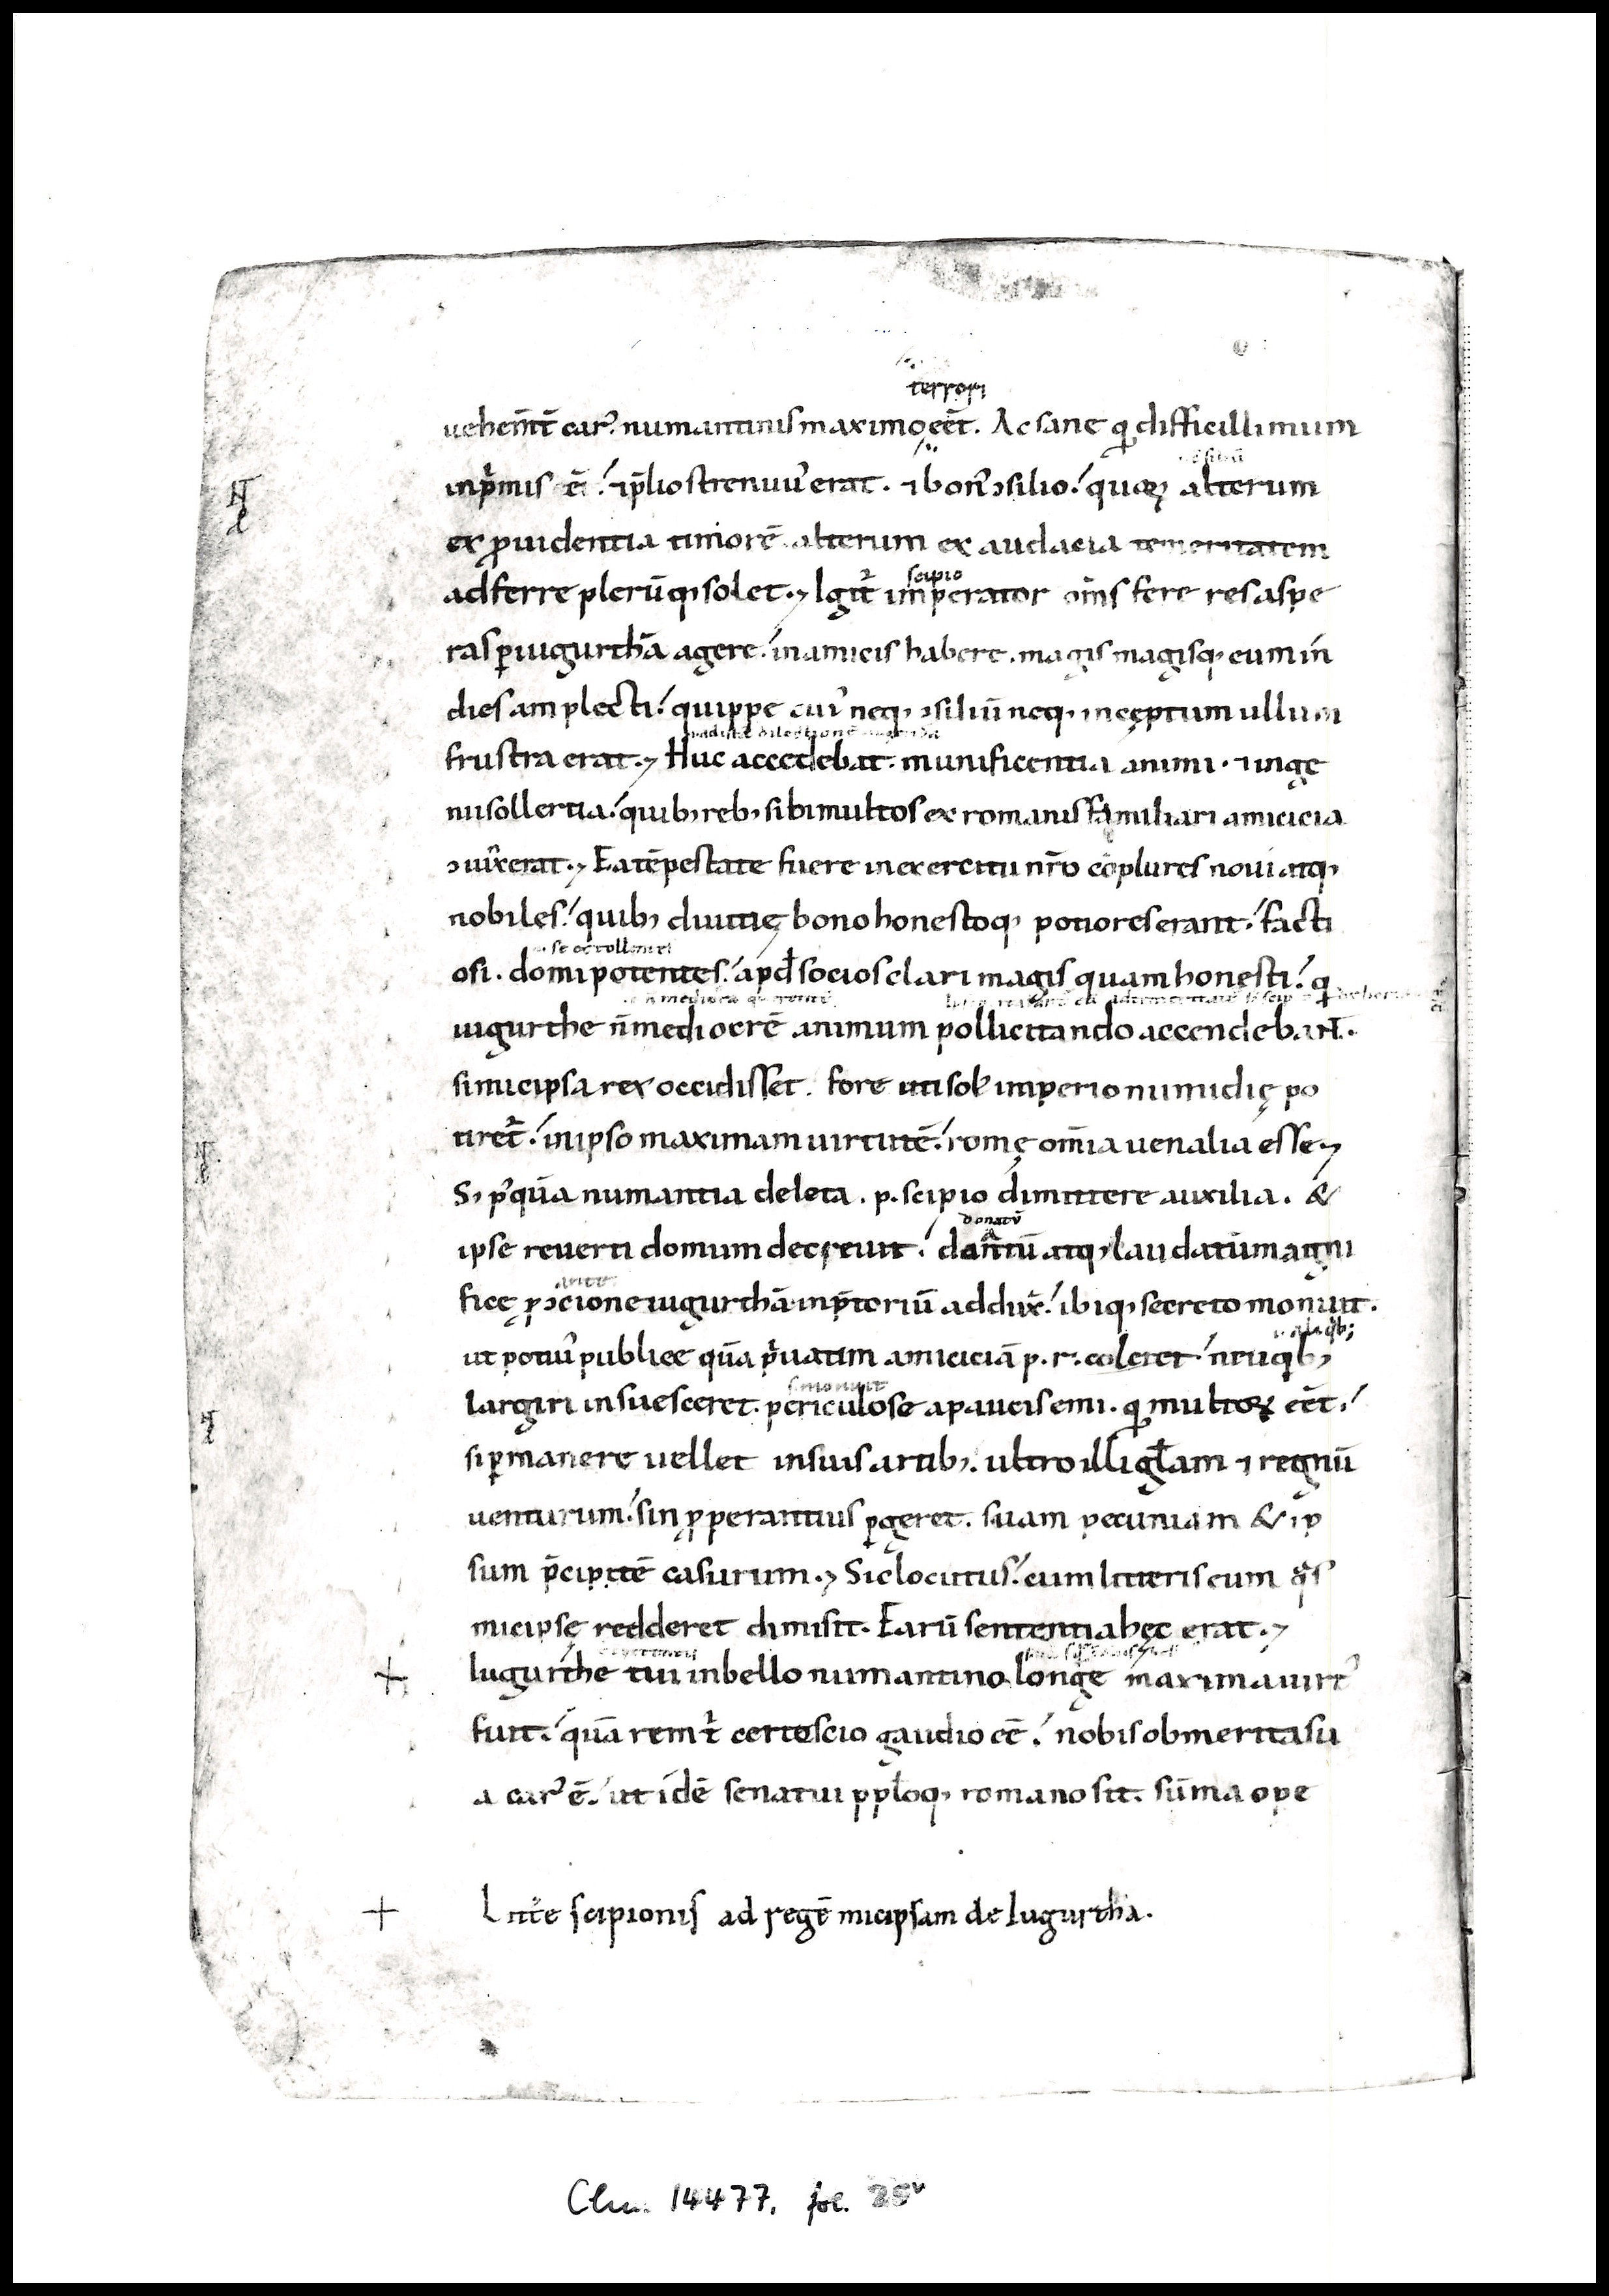 terrori
uehem̄t̄ car᾿ numantinis maximo eēt. Ac sane q̣d difficillimum
inp̄mis ē. ⁊ p̄lio strenuu᾿ erat. ⁊ bon᾿ ɔsilio. quoꝝ alterum
ex ꝓuidentia timorē alterum ex audacia temeritatem
scipio
adferre plerūq; solet. Igit᾿ imperator om̄s fere res aspe
ras ꝑ iugurthā agere. in amicis habere. magis magisq; eum in
dies amplecti. quippe cui᾿ neq; ɔsiliū neq; incęptum ullum
frustra erat. Huc accedebat. munificentia animi. ⁊ inge
nii sollertia. quib; reb; sibi multos ex romanis familiari amicicia
ɔiūxerat. Ea tēpestate fuere in exercitu nr̄o cōplures noui atq;
nobiles. quib; diuitię bono honestoq; potiores erant. facti
osi. domi potentes. apđ socios clari magis quam honesti. q
iugurthe n̄ mediocrē animum pollicitando accendebant.
si micipsa rex occidisset. fore uti sol᾿ imperio numidię po
tiret᾿. in ipso maximam uirtutē. romę om̄ia uenalia esse.
S; p᾿quā numantia deleta. p. scipio dimittere auxilia. &
donatū
ipse reuerti domum decreuit. dantū atq; laudatū magni
fice ꝓ ɔcione iugurthā in p̄toriū addux̄. ibiq; secreto monuit.
ut potiu᾿ publice quā p᾿uatim amiciciā p. r. coleret. neu q᾿b;
s. monuit
largiri insuesceret. periculose a paucis emi. q̣d multoꝝ eēt.
si ꝑmanere uellet in suis artib;. ultro illi gl̄am ⁊ regnū
uenturum. sin ꝓperantius ꝑgeret. suam pecuniam & ip
sum p̄cipitē casurum. Sic locutus. cum litteris eum q̄s
micipsę redderet dimisit. Earū sententia hęc erat.
Iugurthe tui in bello numantino longe maxima uirt᾿
fuit. quā rem t᾿ certe scio gaudio eē. nobis ob merita su
a car᾿ ē. ut idē senatui pploq; romano sit. sūma ope
+ Litt̄e scipionis ad regē micipsam de Iugurtha.
Clm. 14477, fol. 25v